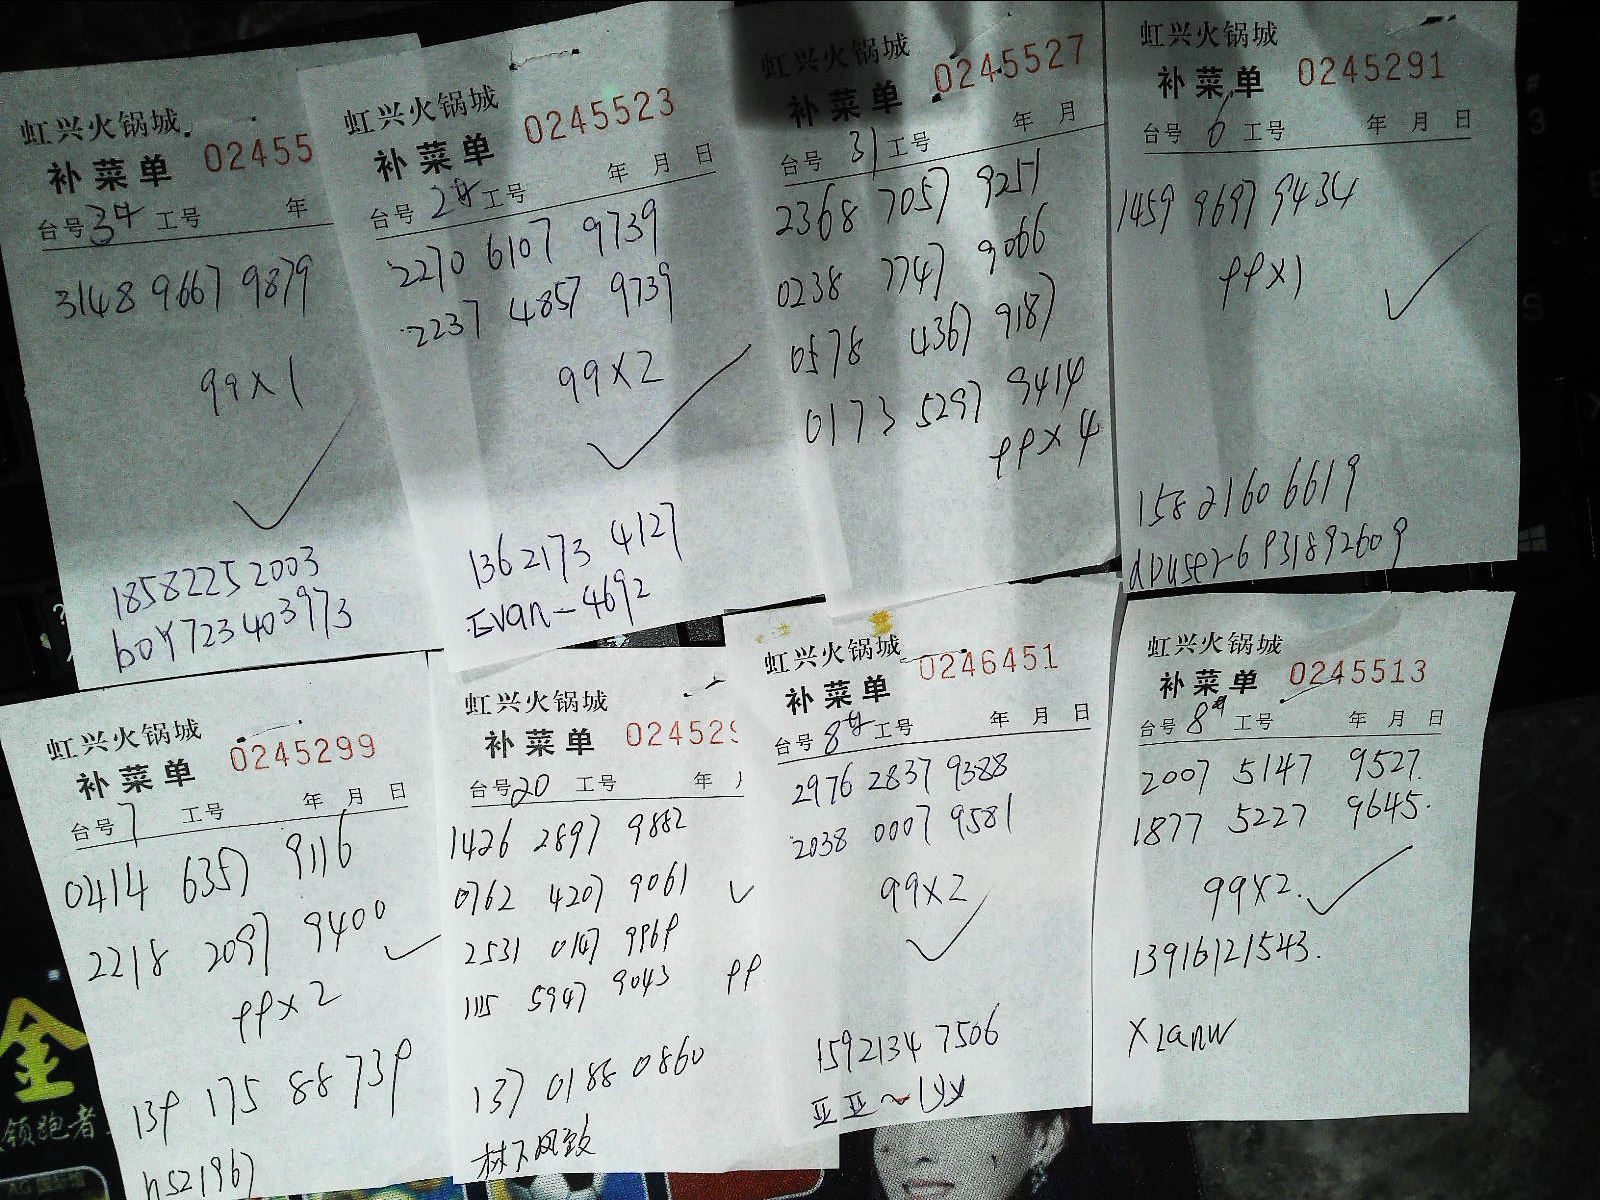 虹兴火锅城
补菜单 02455
台号 34 工号 年
3148 9667 9879
99×1
18582252003
boy723403973
虹兴火锅城
补菜单 0245523
台号 工号 年 月 日
2270 6107 9739
2237 4857 9739
99×2
1362173 4127
Evan-4692
虹兴火锅城
补菜单 0245527
台号 31 工号 年 月
2368 7057 9251
0238 7747 9066
0578 4367 9187
0173 5297 9414
99×4
虹兴火锅城
补菜单 0245291
台号 6 工号 年 月 日
1459 9697 9434
99×1
158 2160 6619
dpuser-6931892609
虹兴火锅城
补菜单 0245299
台号 7 工号 年 月 日
0414 6357 9116
2218 2097 9400
99×2
139 175 88 739
hs21967
虹兴火锅城
补菜单 024529
台号 20 工号 年
1426 2897 9882
0762 4207 9061
2531 0147 9969
1115 5947 9043 99
137 0188 0860
林下风致
虹兴火锅城
补菜单 0246451
台号 8 工号 年 月 日
2976 2837 9388
2038 0007 9581
99×2
1592134 7506
亚亚~
虹兴火锅城
补菜单 0245513
台号 8 工号 年 月 日
2007 5147 9527.
1877 5227 9645.
99×2.
13916121543.
xianw
金
领跑者